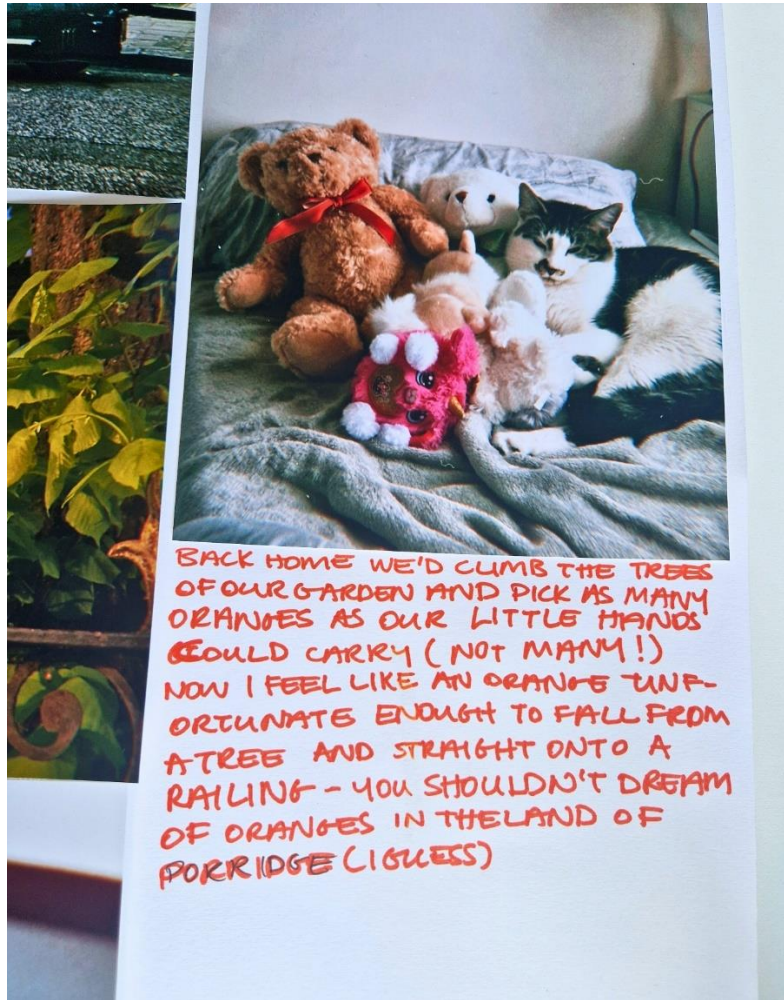 BACK HOME WE'D CLIMB THE TREES
OF OUR GARDEN AND PICK AS MANY
ORANGES AS OUR LITTLE HANDS
COULD CARRY (NOT MANY!)
NOW I FEEL LIKE AN ORANGE UNF-
ORTUNATE ENOUGH TO FALL FROM
A TREE AND STRAIGHT ONTO A
RAILING - YOU SHOULDN'T DREAM
OF ORANGES IN THE LAND OF
PORRIDGE (I GUESS)